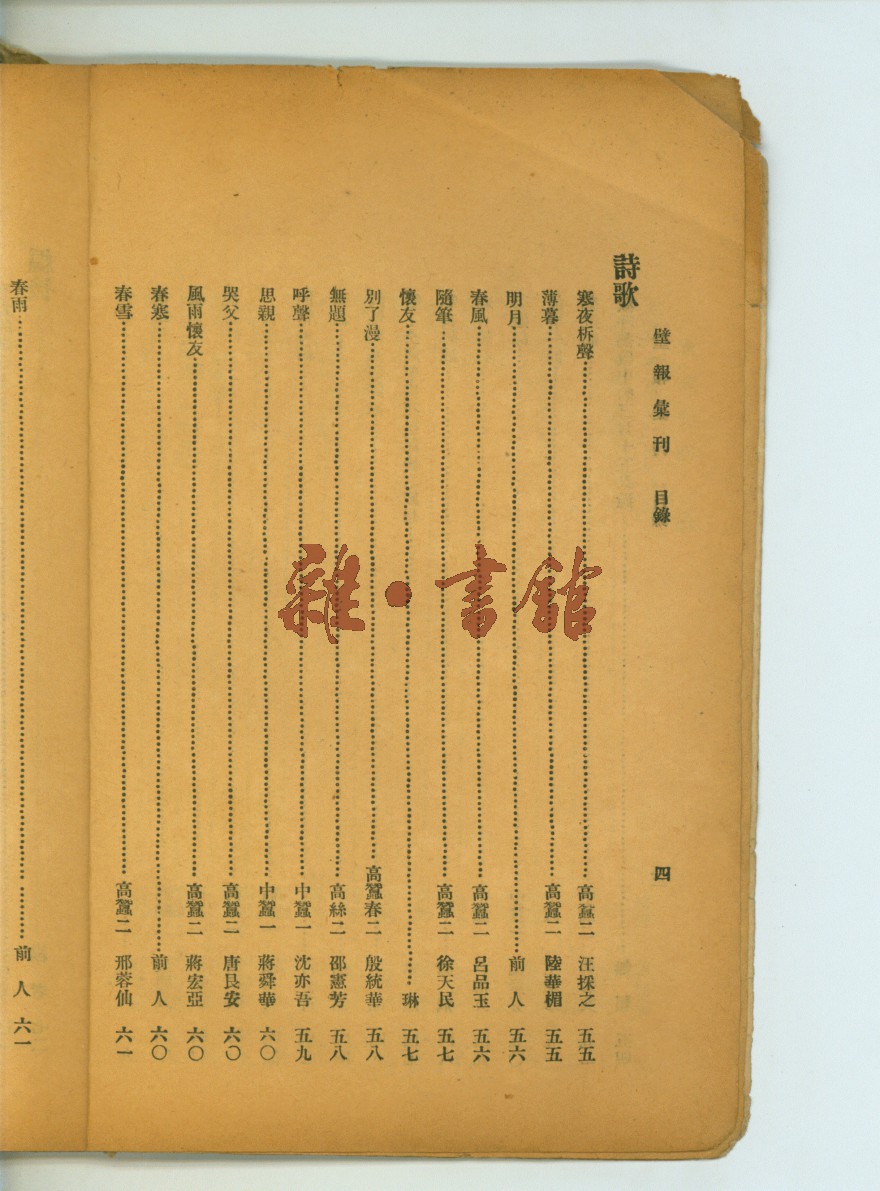 壁報彙刊 目錄 四
詩歌
寒夜柝聲 高蠶二 汪採之 五五
薄暮 高蠶二 陸華楣 五五
明月 前人 五六
春風 高蠶二 呂品玉 五六
隨筆 高蠶二 徐天民 五七
懷友 琳 五七
別了漫 高蠶春二 殷統華 五八
無題 高絲二 邵憲芳 五八
呼聲 中蠶一 沈亦吾 五九
思親 中蠶一 蔣舜華 六〇
哭父 高蠶二 唐艮安 六〇
風雨懷友 高蠶二 蔣宏亞 六〇
春寒 前人 六〇
春雪 高蠶二 邢蓉仙 六一
春雨 前人 六一
雜·書館